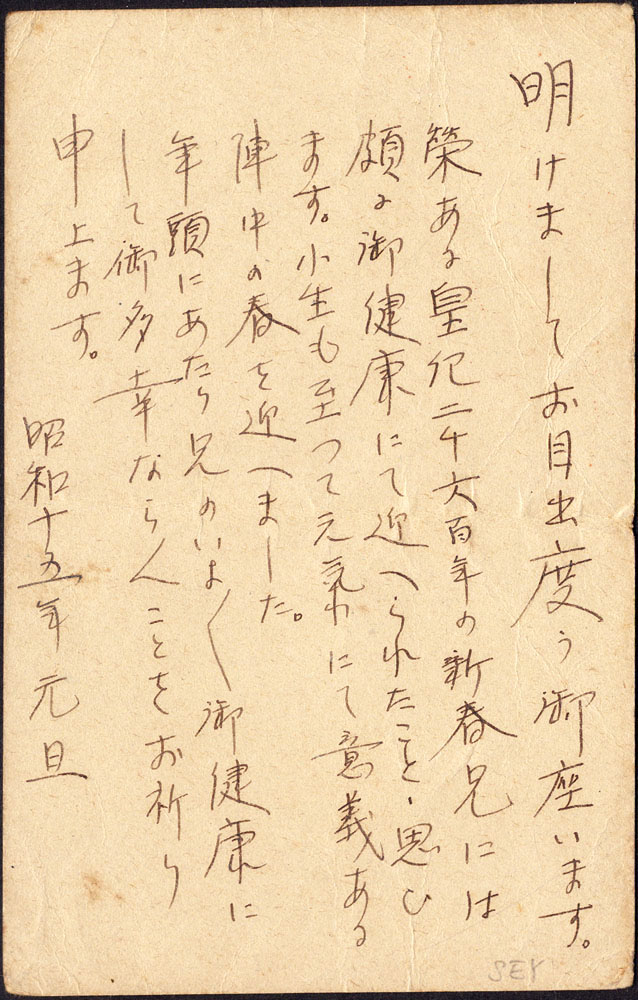 明けましてお目出度う御座います。
榮ある皇紀二千六百年の新春兄には
頗る御健康にて迎へられたこと思ひ
ます。小生も至つて元氣にて意義ある
陣中の春を迎へました。
年頭にあたり兄のいよ〱御健康に
して御多幸ならんことをお祈り
申上ます。
昭和十五年元旦
SEY